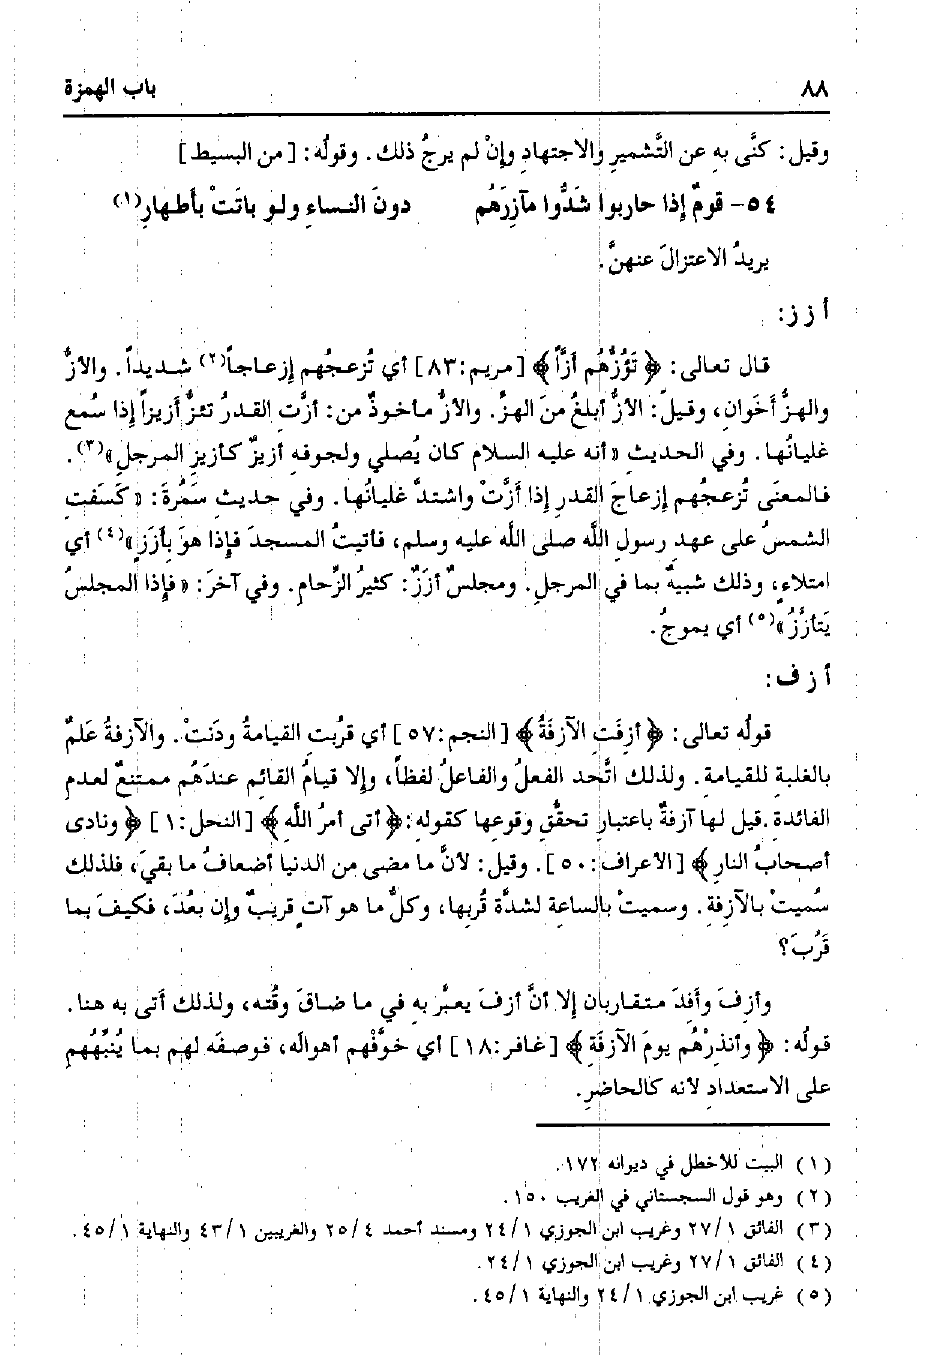 ٨٨ باب الهمزة
وقيل: كنَّى به عن التَّشميرِ والاجتهادِ وإنْ لم يرجُ ذلك. وقولُه: [من البسيط]
٥٤- قومٌ إذا حاربوا شَدُّوا مآزِرَهُم دونَ النساءِ ولو باتَتْ بأطهارِ(١)
يريدُ الاعتزالَ عنهنَّ.
أ ز ز:
قال تعالى: ﴿تَؤُزُّهُم أزّاً﴾ [مريم:٨٣] أي تُزعجُهم إزعاجاً(٢) شديداً. والأزُّ
والهزُّ أخَوان، وقيلَ: الأزُّ أبلغُ منَ الهزِّ. والأزُّ مأخوذٌ من: أزَّتِ القدرُ تئزُّ أزيزاً إذا سُمع
غليانُها. وفي الحديث «أنه عليه السلام كان يُصلي ولجوفهِ أزيزٌ كأزيزِ المرجلِ»(٣).
فالمعنَى تُزعجُهم إزعاجَ القدرِ إذا أزَّتْ واشتدَّ غليانُها. وفي حديثِ سَمُرةَ: «كَسَفتِ
الشمسُ على عهدِ رسولِ اللَّه صلى اللَّه عليه وسلم، فأتيتُ المسجدَ فإذا هوَ بأزَزٍ»(٤) أي
امتلاءٍ، وذلك شبيهٌ بما في المرجلِ. ومجلسٌ أزَزٌ: كثيرُ الزِّحامِ. وفي آخرَ: «فإذا المجلسُ
يَتأزَّزُ»(٥) أي يموجُ.
أ ز ف:
قولُه تعالى: ﴿أزِفَتِ الآزِفَةُ﴾ [النجم:٥٧] أي قرُبت القيامةُ ودَنتْ. والآزفةُ عَلمٌ
بالغلبة للقيامة. ولذلك اتَّحد الفعلُ والفاعلُ لفظاً، وإلا قيامُ القائم عندَهُم ممتنعٌ لعدمِ
الفائدة. قيل لها آزفةٌ باعتبارِ تحقُّقِ وقوعها كقوله: ﴿أتى أمرُ اللَّه﴾ [النحل:١] ﴿ونادى
أصحابُ النارِ﴾ [الأعراف:٥٠]. وقيل: لأنَّ ما مضى من الدنيا أضعافُ ما بقيَ، فلذلك
سُميتْ بالآزفةِ. وسميتْ بالساعة لشدَّة قُربِها، وكلُّ ما هو آتٍ قريبٌ وإن بعُدَ، فكيفَ بما
قَرُبَ؟
وأزِفَ وأفِدَ متقاربان إلا أنَّ أزفَ يعبَّر به في ما ضاقَ وقتُه، ولذلك أتى به هنا.
قولُه: ﴿وأنذِرْهُم يومَ الآزفَةِ﴾ [غافر:١٨] أي خوَّفْهم أهوالَه، فوصفَه لهم بما يُنبِّهُهم
على الاستعدادِ لأنه كالحاضرِ.
(١) البيت للأخطل في ديوانه ١٧٢.
(٢) وهو قول السجستاني في الغريب ١٥٠.
(٣) الفائق ١/٢٧ وغريب ابن الجوزي ١/٢٤ ومسند أحمد ٤/٢٥ والغريبين ١/٤٣ والنهاية ١/٤٥.
(٤) الفائق ١/٢٧ وغريب ابن الجوزي ١/٢٤.
(٥) غريب ابن الجوزي ١/٢٤ والنهاية ١/٤٥.